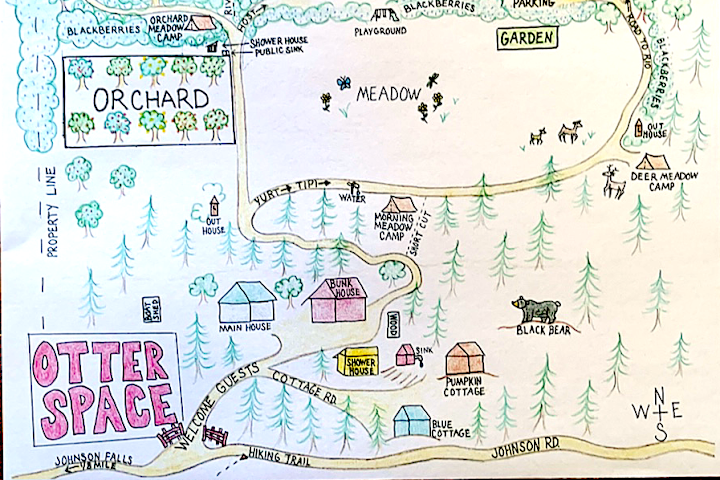 BLACKBERRIES
ORCHARD
MEADOW
CAMP
HOST
PLAYGROUND
BLACKBERRIES
PARKING
GARDEN
ROAD TO RIO
BLACKBERRIES
SHOWER HOUSE
PUBLIC SINK
ORCHARD
MEADOW
OUT
HOUSE
DEER MEADOW
CAMP
PROPERTY LINE
YURT
TIPI
WATER
OUT
HOUSE
MORNING
MEADOW
CAMP
SHORT CUT
BOAT
SHED
MAIN HOUSE
BUNK
HOUSE
WOOD
BLACK BEAR
OTTER
SPACE
SHOWER
HOUSE
SINK
PUMPKIN
COTTAGE
WELCOME GUESTS
COTTAGE RD.
BLUE
COTTAGE
N
W E
S
JOHNSON FALLS
1/8 MILE
HIKING TRAIL
JOHNSON RD.